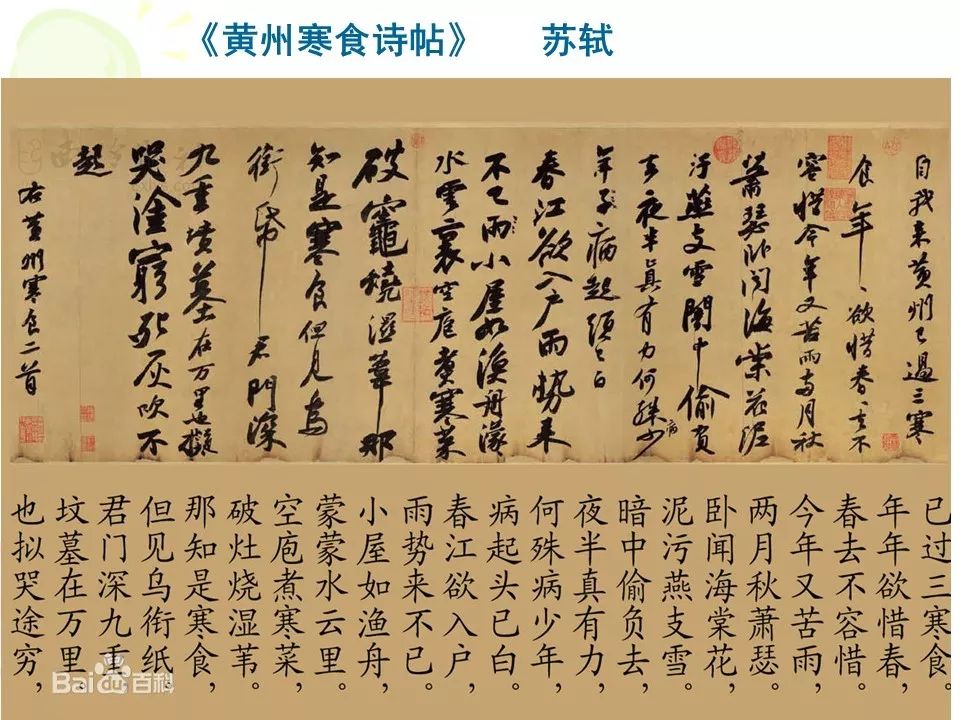 《黄州寒食诗帖》 苏轼
自我来黄州已過三寒
食年〻欲惜春〻去不
容惜今年又苦雨兩月秋
蕭瑟卧聞海棠花泥
汙燕支雪闇中偷負
去夜半真有力何殊少
病
年子病起頭已白
春江欲入户雨勢来
不已雨小屋如漁舟濛〻
水雲裏空庖煮寒菜
破竈燒濕葦那
知是寒食但見烏
銜帋君門深
九重墳墓在万里也擬
哭塗窮死灰吹不
起
右黄州寒食二首
已过三寒食。
年年欲惜春，
春去不容惜。
今年又苦雨，
两月秋萧瑟。
卧闻海棠花，
泥污燕支雪。
暗中偷负去，
夜半真有力，
何殊病少年，
病起头已白。
春江欲入户，
雨势来不已。
小屋如渔舟，
蒙蒙水云里。
空庖煮寒菜，
破灶烧湿苇。
那知是寒食，
但见乌衔纸。
君门深九重，
坟墓在万里。
也拟哭途穷，
Baidu百科